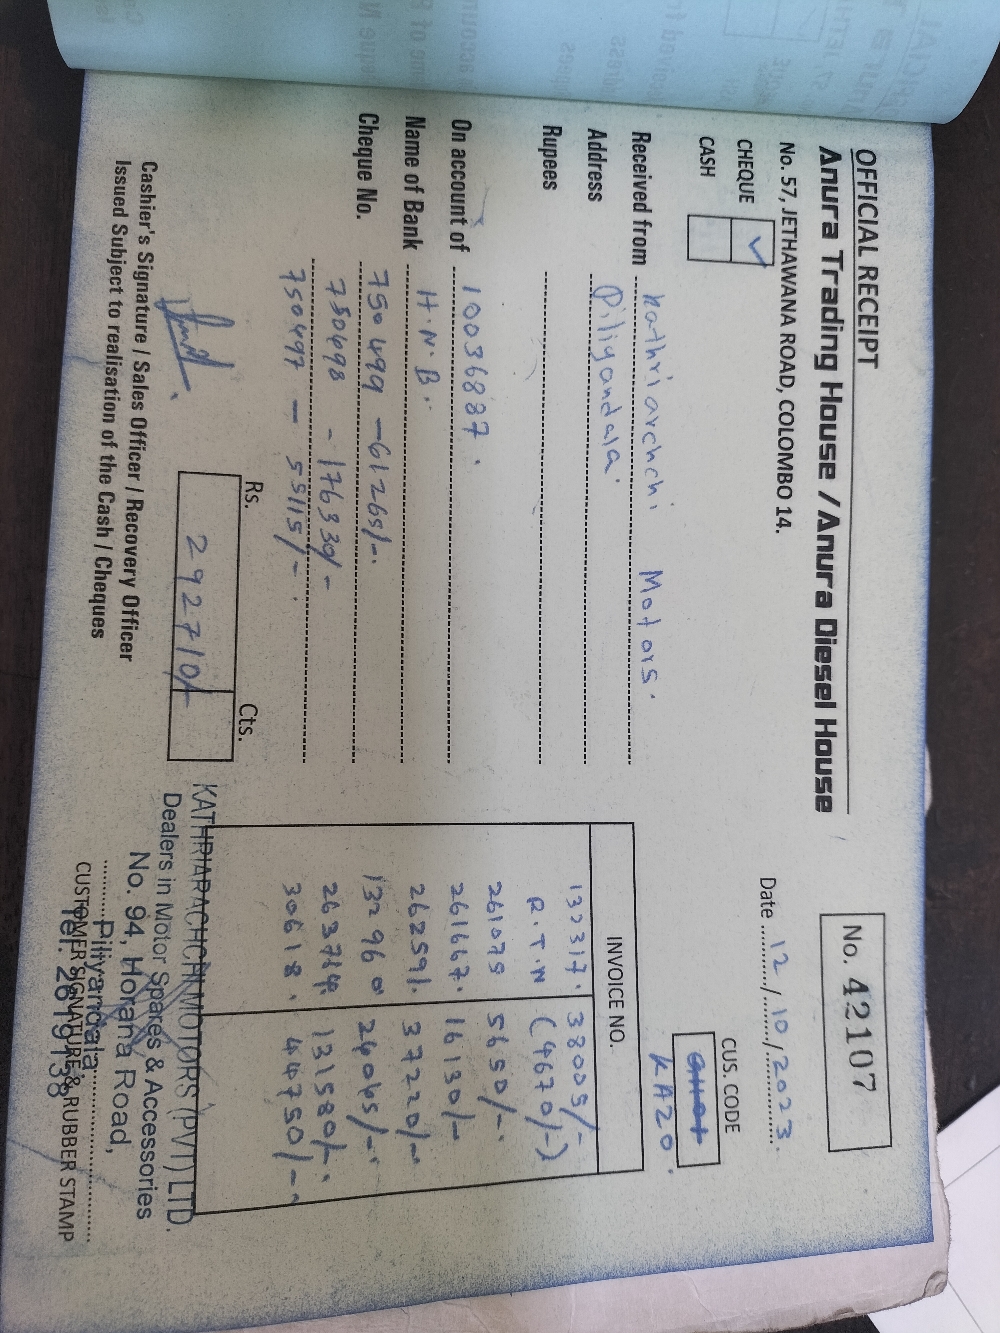 OFFICIAL RECEIPT
Anura Trading House / Anura Diesel House
No. 57, JETHAWANA ROAD, COLOMBO 14.
No. 42107
Date 12/10/2023.
CHEQUE ✓
CASH
CUS. CODE
KA20.
Received from Kathriarchchi Motors.
Address Piliyandala.
Rupees
On account of 10036887.
Name of Bank H.N.B.
Cheque No. 750499 - 61265/-.
750498 - 176330/-
750497 - 55115/-.
INVOICE NO.
137317. 38005/-
R.T.N (4670/-)
261075 5650/-.
261667. 16130/-
262591. 37720/-
132960 24045/-.
263714. 131580/-.
30618. 44750/-.
Rs. Cts.
292710/-
Cashier's Signature / Sales Officer / Recovery Officer
Issued Subject to realisation of the Cash / Cheques
KATHRIARACHCHI MOTORS (PVT) LTD.
Dealers in Motor Spares & Accessories
No. 94, Horana Road,
Piliyandala.
CUSTOMER SIGNATURE & RUBBER STAMP
Tel: 2619138